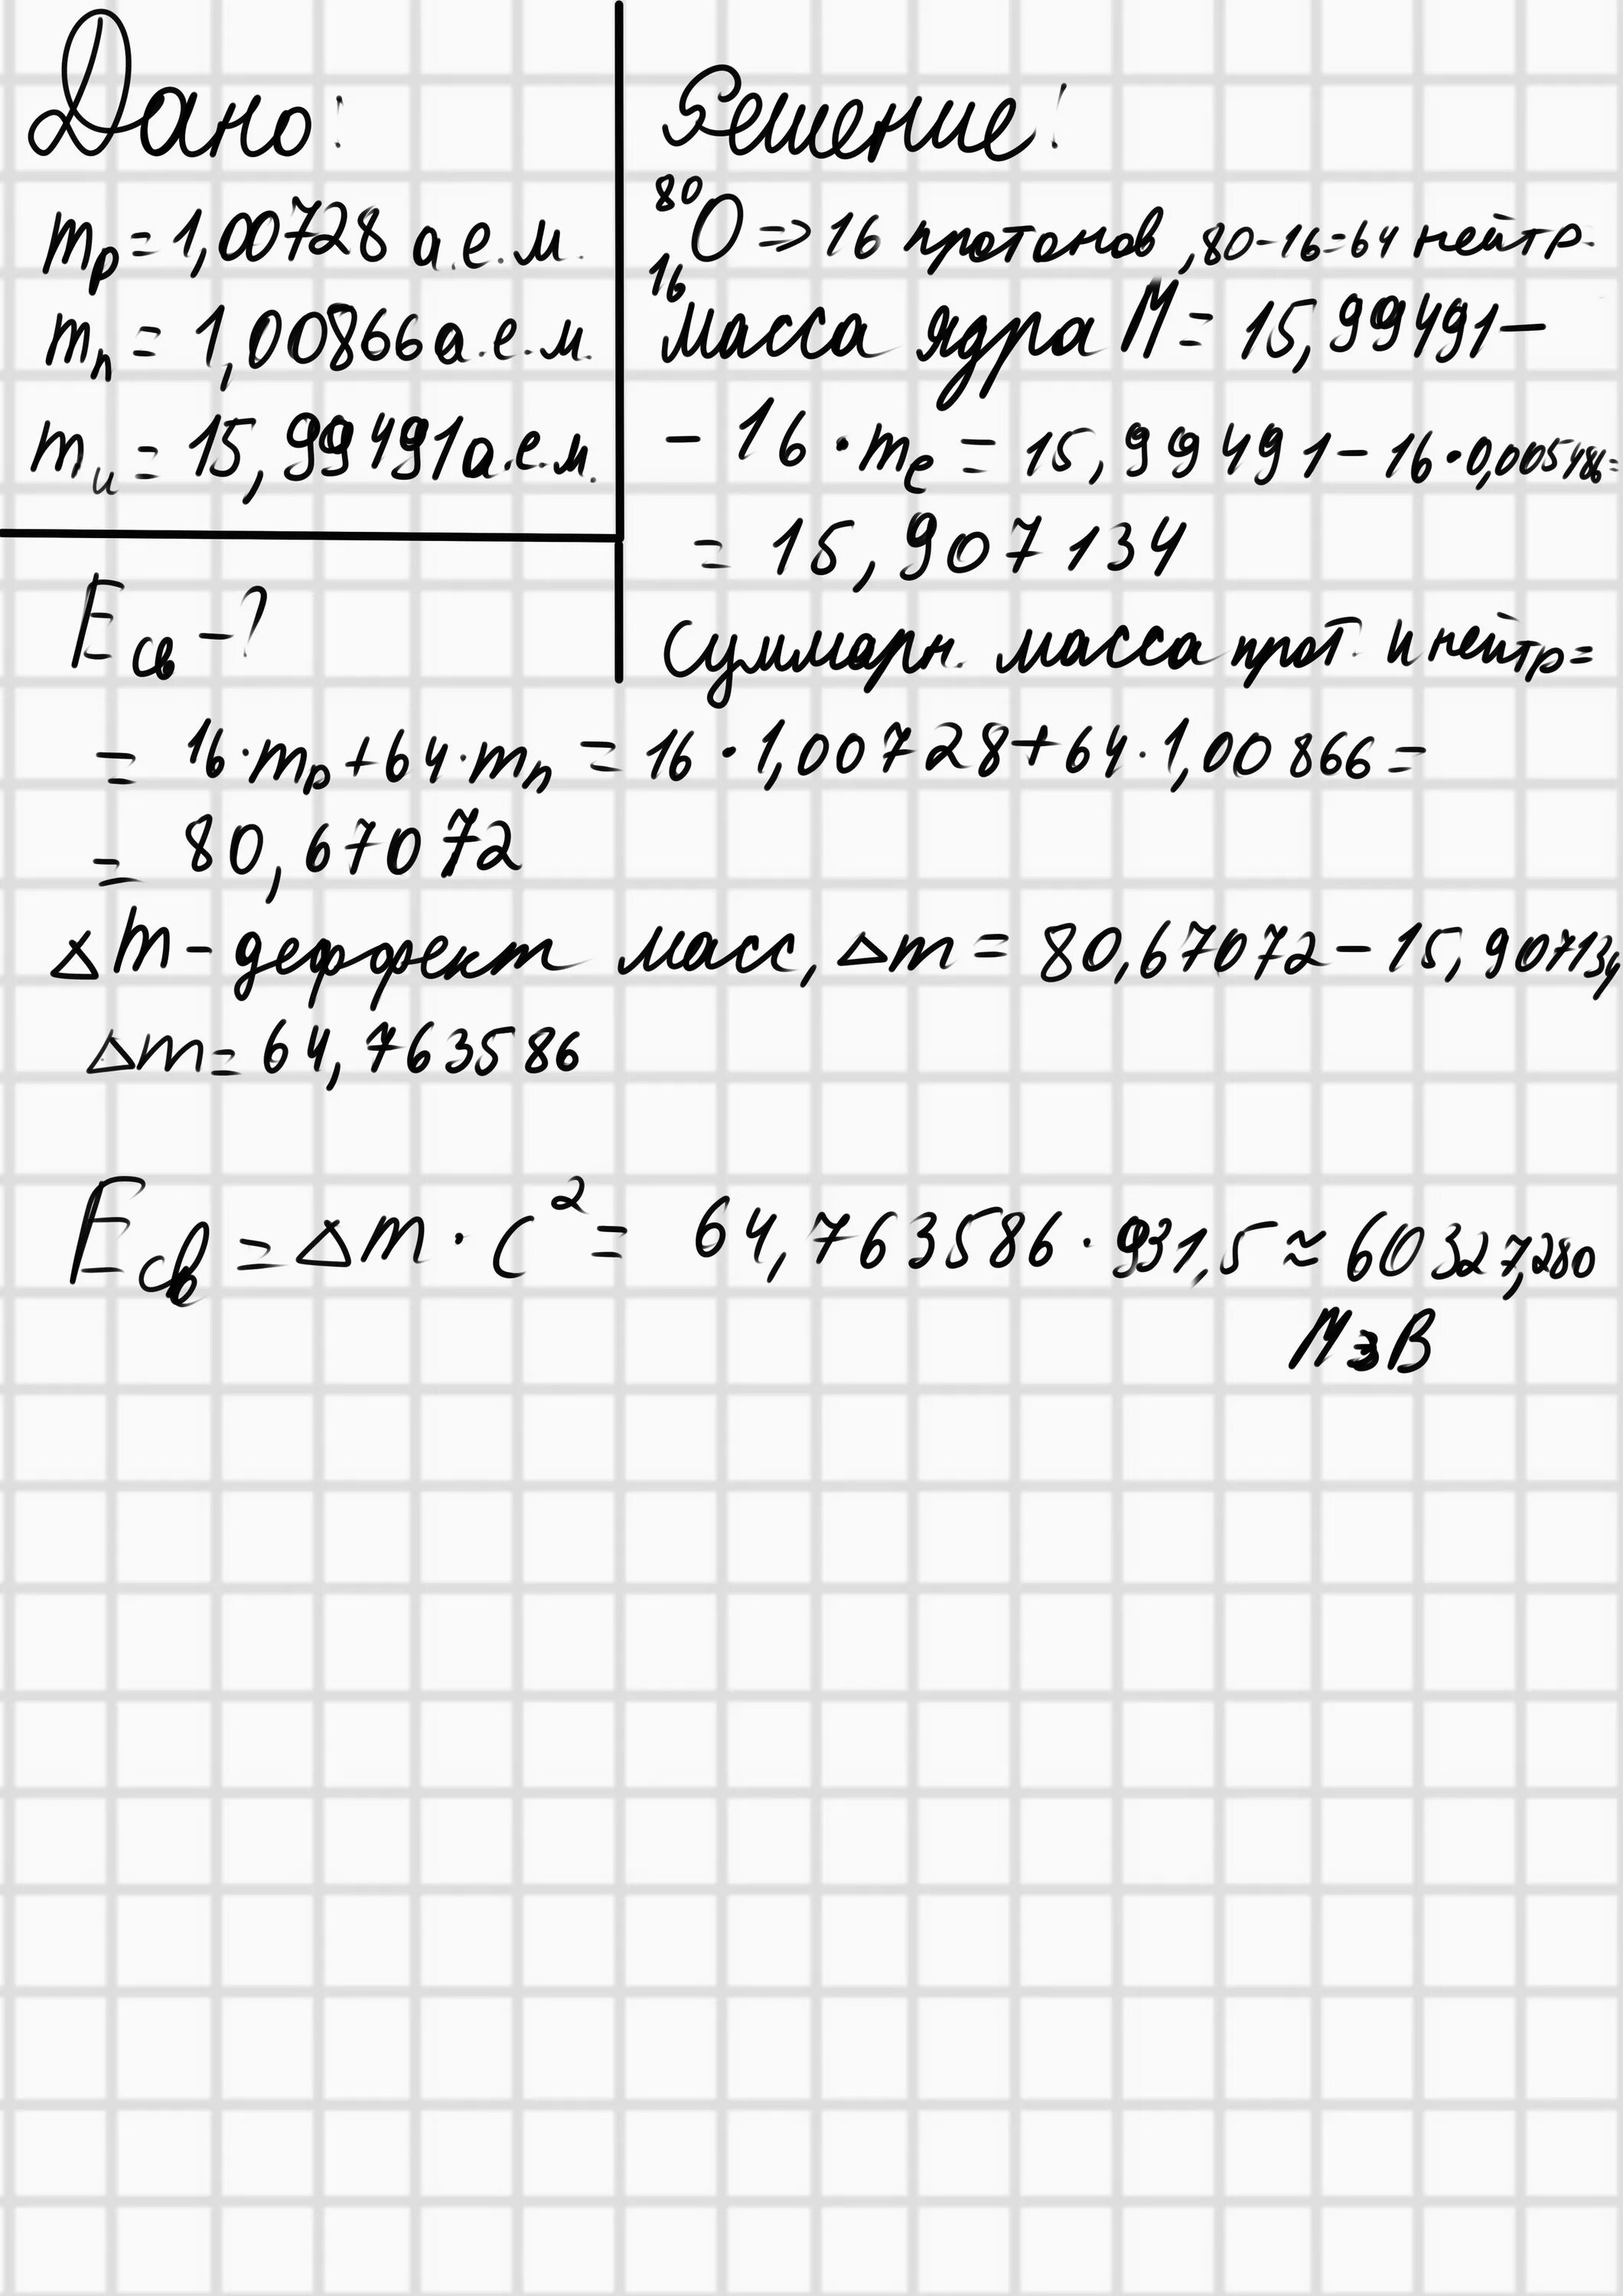 Дано:
mp = 1,00728 а.е.м.
mn = 1,00866 а.е.м.
mи = 15,99491 а.е.м.
Eсв - ?
Решение:
⁸⁰₁₆O => 16 протонов, 80-16=64 нейтр.
Масса ядра M = 15,99491 -
- 16 · me = 15,99491 - 16 · 0,005486 =
= 15,907134
Суммарн. масса прот. и нейтр =
= 16·mp + 64·mn = 16 · 1,00728 + 64 · 1,00866 =
= 80,67072
Δm - деффект масс, Δm = 80,67072 - 15,907134
Δm = 64,763586
Eсв = Δm · c² = 64,763586 · 931,5 ≈ 60327,280
МэВ